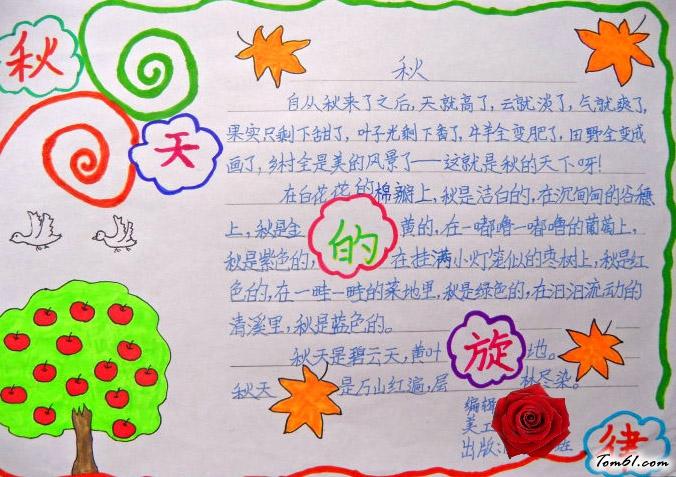 秋
天
的
旋
律
秋
自从秋来了之后,天就高了,云就淡了,气就爽了,
果实只剩下甜了,叶子光剩下香了,牛羊全变肥了,田野全变成
画了,乡村全是美的风景了——这就是秋的天下呀!
在白花花的棉瓣上,秋是洁白的,在沉甸甸的谷穗
上,秋是金黄的,在一嘟噜一嘟噜的葡萄上,
秋是紫色的,在挂满小灯笼似的枣树上,秋是红
色的,在一畦一畦的菜地里,秋是绿色的,在汩汩流动的
清溪里,秋是蓝色的。
秋天是碧云天,黄叶地。
秋天是万山红遍,层林尽染。
编辑
美工
出版:
Tom61.com